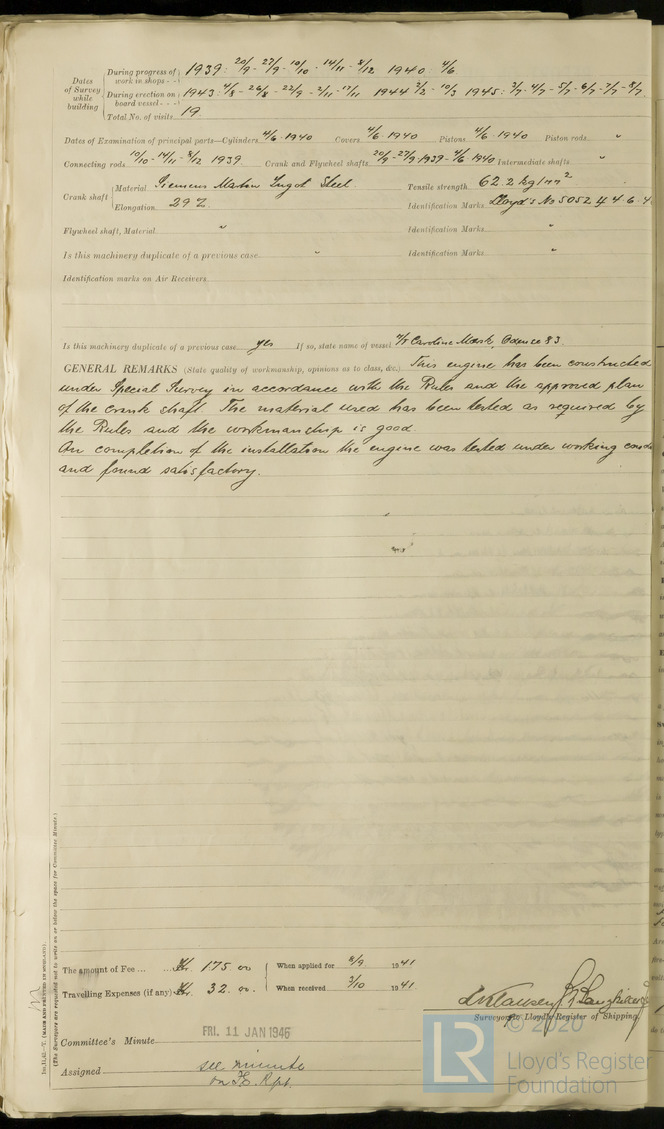 Dates of Survey while building
During progress of work in shops - - 1939: 20/9 - 27/9 - 10/10 - 14/11 - 8/12 1940: 4/6
During erection on board vessel - - - 1943: 4/8 - 26/8 - 22/9 - 2/11 - 17/11 1944 2/2 - 10/3 1945: 3/7 - 4/7 - 5/7 - 6/7 - 7/7 - 8/7
Total No. of visits 19.
Dates of Examination of principal parts—Cylinders 4/6 - 1940 Covers 4/6 - 1940 Pistons 4/6 - 1940 Piston rods "
Connecting rods 10/10 - 14/11 - 8/12 1939 Crank and Flywheel shafts 20/9 - 27/9 - 1939 - 4/6 1940 Intermediate shafts "
Crank shaft Material Siemens Martin Ingot Steel Tensile strength 62.2 kg/mm2
Elongation 29 % Identification Marks Lloyd's No 5052 4.4.6.4
Flywheel shaft, Material " Identification Marks "
Is this machinery duplicate of a previous case " Identification Marks "
Identification marks on Air Receivers
Is this machinery duplicate of a previous case yes If so, state name of vessel M/S Caroline Mærsk, Odense 83
GENERAL REMARKS (State quality of workmanship, opinions as to class, &c.) This engine has been constructed
under Special Survey in accordance with the Rules and the approved plan
of the crank shaft. The material used has been tested as required by
the Rules and the workmanship is good.
On completion of the installation the engine was tested under working
and found satisfactory.
The amount of Fee ... ... Kr. 175.00 When applied for 8/9 1941
Travelling Expenses (if any) Kr. 32.00. When received 3/10 1941
Surveyor to Lloyd's Register of Shipping.
Committee's Minute FRI. 11 JAN 1946
Assigned see minute
on F.E. Rpt.
(MADE AND PRINTED IN ENGLAND.)
(The Surveyors are requested not to write on or below the space for Committee Minute.)
© 2020
LR
Lloyd's Register
Foundation